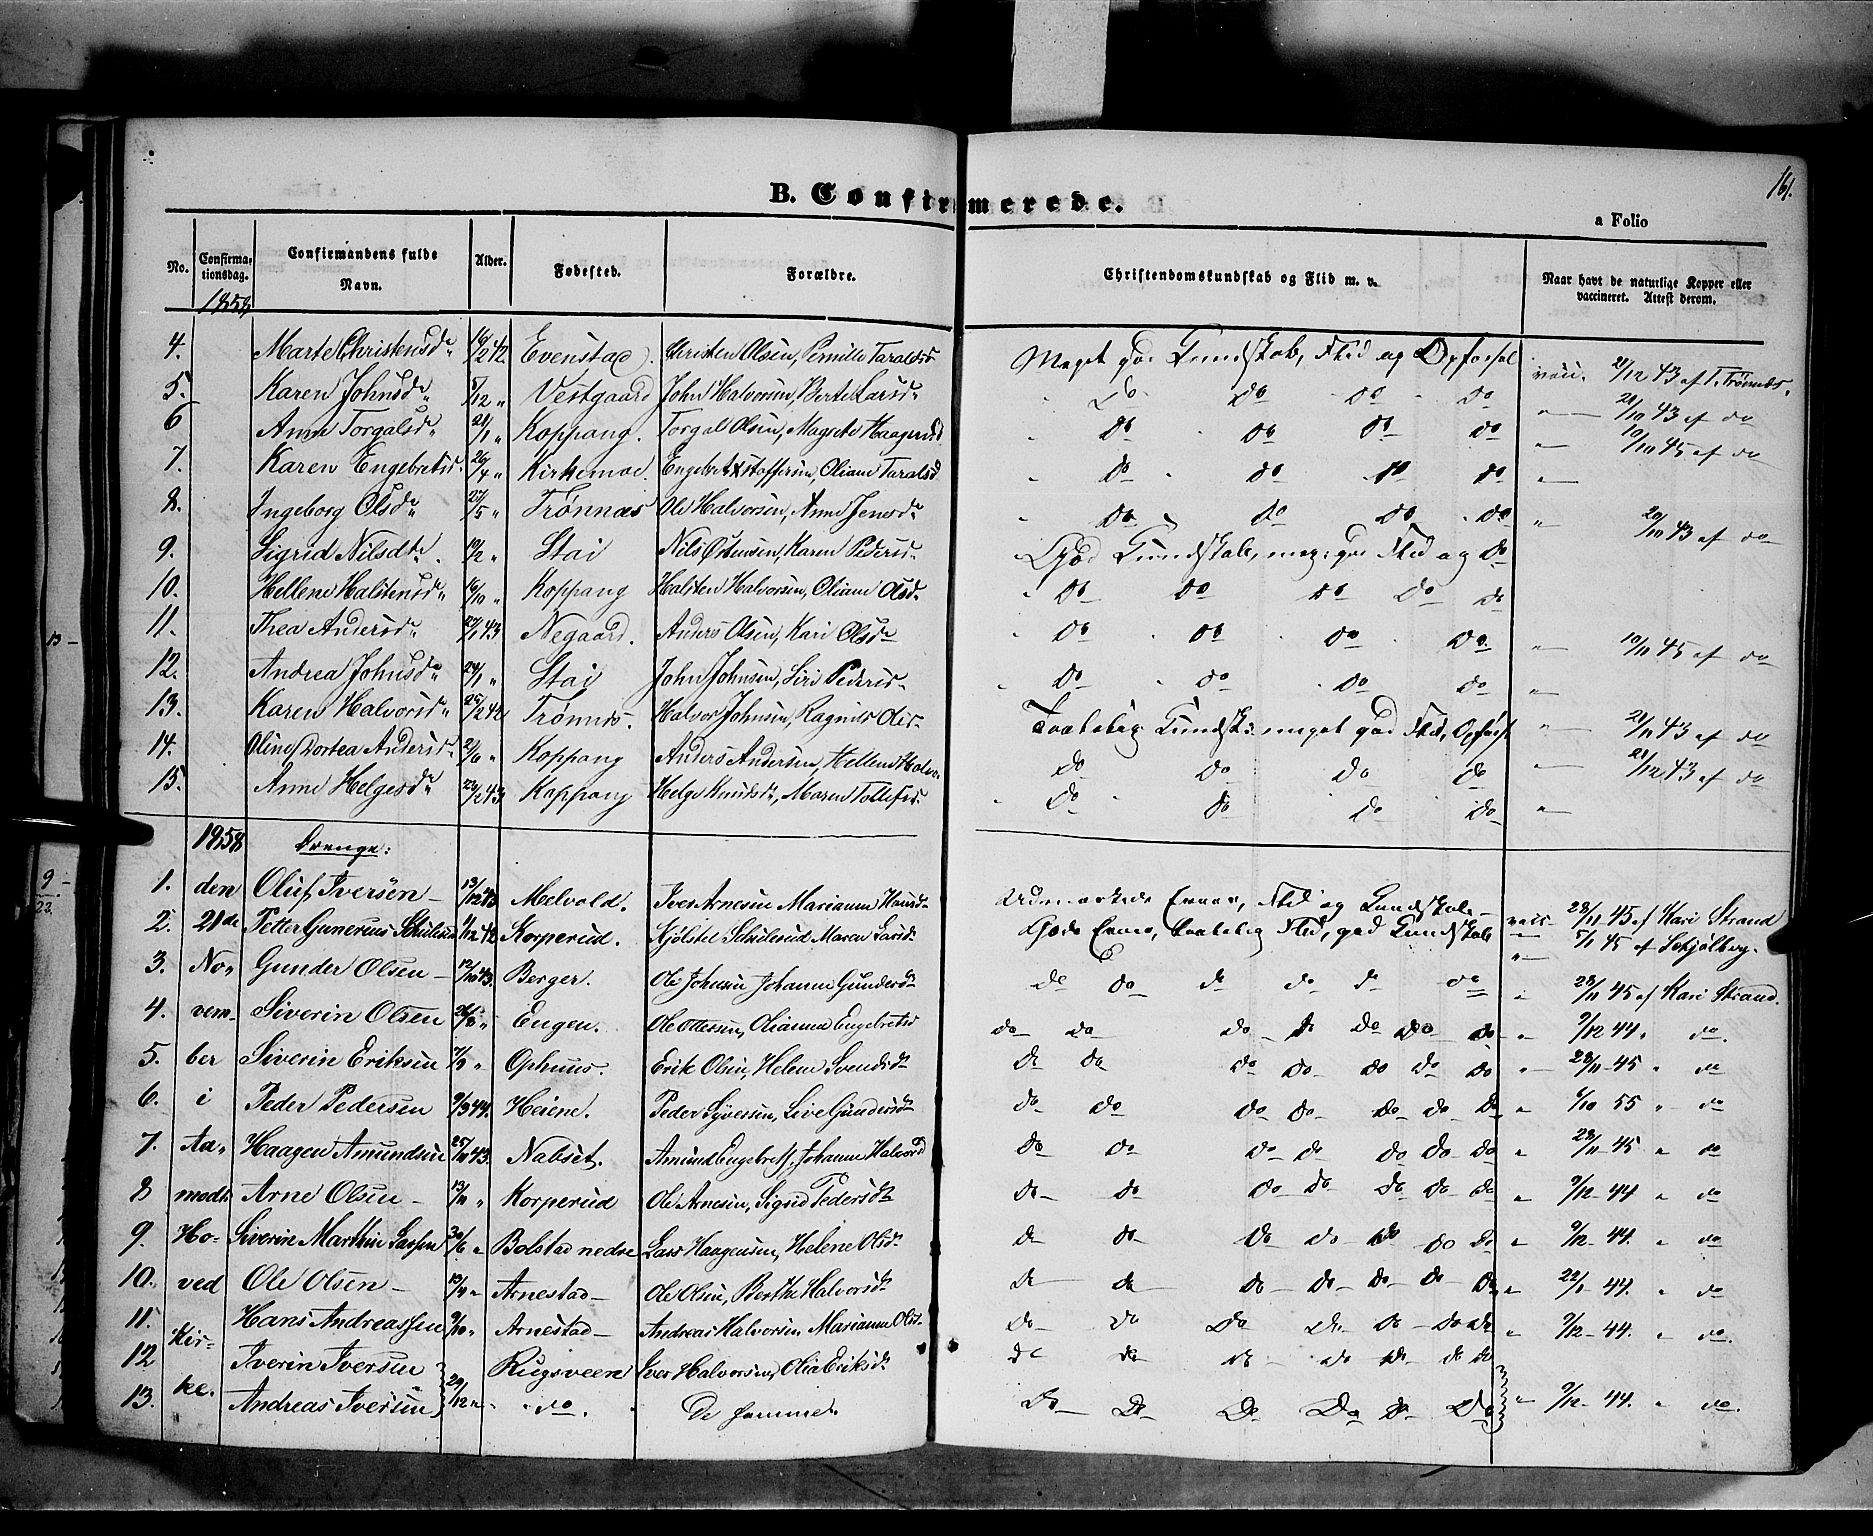 161.
B. Confirmerede.
a Folio
No. Confirmationsdag. Confirmandens fulde Navn. Alder. Fødested. Forældre. Christendomskundskab og Flid m. v. Naar havt de naturlige Kopper eller vaccineret. Attest derom.
1858
4. Marte Christensd. 16/2 42 Evenstad. Christen Olsen, Pernille Taraldsd. Meget god Kundskab, Flid og Opførsel 21/12 43 af T. Trønnes.
5. Karen Johnsd. 5/12 " Vestgaard John Halvorsen, Berte Larsd. do do do do 21/10 43 af do
6 Anne Torgalsd. 21/1 " Koppang. Torgal Olsen, Magrete Haagensd do do do do 10/10 45 af do
7. Karen Engebretsd. 26/4 " Kirkemoe. Engebret Kstoffersen, Oliane Taralsd do do do do
8. Ingeborg Olsd. 27/5 " Trønnæs Ole Halvorsen, Anne Jensd. do do do do 20/10 43 af do
9. Sigrid Nilsdt. 12/2 " Stai Nils Ostensen, Karen Pedersd. God Kundskab, meg: god Flid og do
10. Hellene Halstensd. 16/10 " Koppang Halsten Halvorsen, Oliane Olsd. do do do do do
11. Thea Andersd. 27/1 43 Negaard. Anders Olsen, Kari Olsd. do do do do 10/10 45 af do
12. Andrea Johnsd. 24/1 " Stai John Johnsen, Siri Pedersd. do do do do
13. Karen Halvorsd. 25/2 42 Trønnes. Halvor Johnsen, Ragnild Olsd. Taalelig Kundsk: meget god Flid, Opførs 21/11 43 af do
14. Oline Dortea Andersd. 2/6 " Koppang Anders Andersen, Hellene Halvo. do do do do 21/12 43 af do
15. Anne Helgesd. 22/2 43. Koppang Helge Knudsd., Maren Tollefsd. do do do do
1858 Drenge:
1. den Oluf Iversen 13/12 43 Melvold. Iver Arnesen Marianne Hansd. Udmærkede Evner, Flid og Kundskab 28/11 45 af Kari Strand
2. 21de Petter Gunerius Schulerud 1/12 42 Korperud. Kjølstel Schulerud Maren Larsd. Gode Evner, taalelig Flid, god Kundskab 5/1 45 af Schjølberg.
3. No- Gunder Olsen 12/10 43. Berger. Ole Johnsen Johanne Gundersd. do do do do do do 28/11 45 af Kari Strand.
4. vem- Siverin Olsen 26/8 " Engen. Ole Ottersen, Olianna Engebretsd do do do do do do do 9/12 44 " do.
5. ber Siverin Eriksen 7/9 " Ophuus. Erik Olsen, Helene Svendsd. do do do do do do do 28/11 45 " do
6. i Peder Pedersen 9/3 44. Heiene. Peder Syversen, Live Gundersd. do do do do do do do 6/10 55 " do
7. Aa- Haagen Amundsen 25/10 43. Nabset. Amund Engebrets, Johanne Halvorsd do do do do do do do 28/11 45 " do
8 modt Arne Olsen 13/11 " Korperud Ole Arnesen, Sigrid Pedersd. do do do do do do do 9/12 44 " do
9. Ho- Siverin Marthin Larsen 30/6 " Bolstad nedre Lars Haagensen, Helene Olsd. do do do do do do do 9/12 44. " do
10. ved Ole Olsen Arnestad Ole Olsen, Berthe Halvorsd. do do do do do do do 22/1 44. " do
11. Kir- Hans Andreassen 9/10 " Arnestad Andreas Halvorsen Marianne Olsd. do do do do do do do 9/12 44. " do.
12 Iverin Iversen Rugsveen Iver Halvorsen, Olia Eriksd. do do do do do do do
13. ke. Andreas Iversen 29/12 " do. De samme do do do do do do 9/12 44. " do.